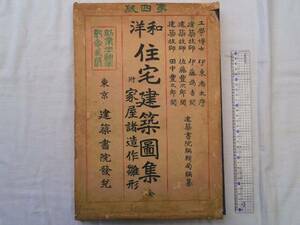 第四版
工學博士 伊東忠太序
建築技師 伊藤爲吉閲
建築技師 佐藤豊次郎閲
建築技師 田中豊次郎閲
建築書院編輯局編纂
和洋 住宅建築圖集 全
附 家屋諸造作雛形
東京 建築書院發兌